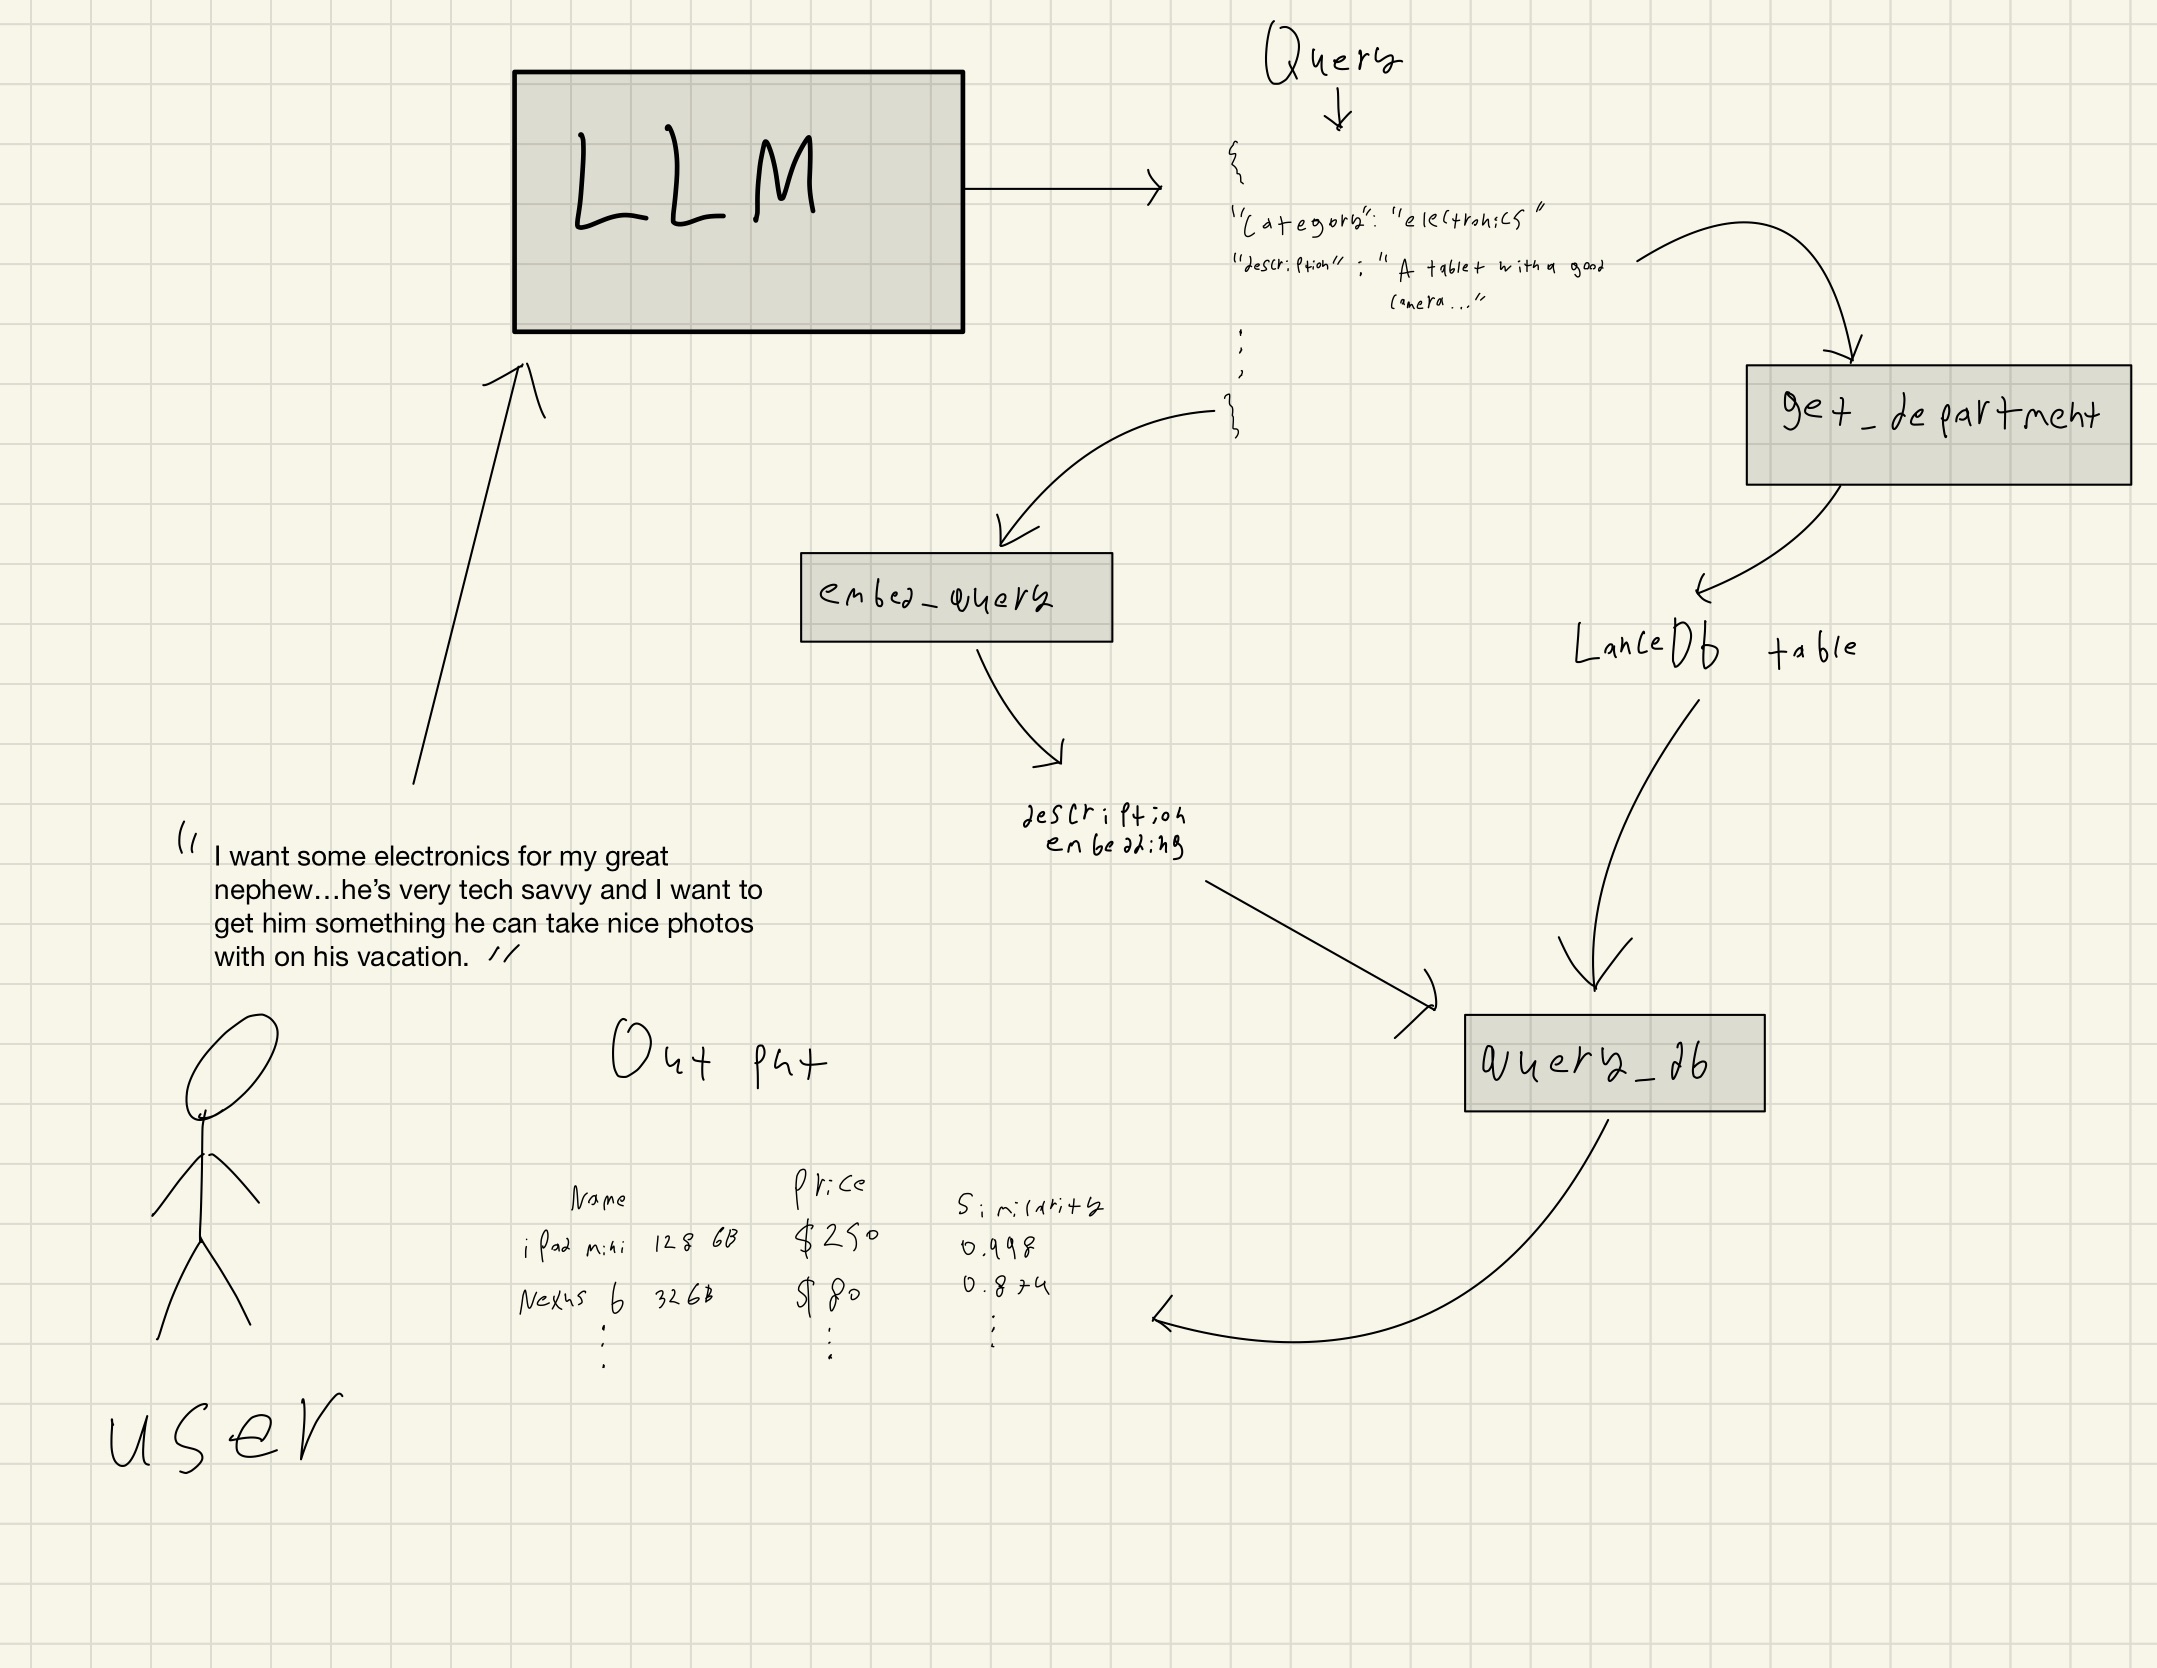 Query
LLM
{
"Category": "electronics"
"description": "A tablet with a good
camera..."
}
get_department
embed_query
LanceDb table
description
embedding
"I want some electronics for my great
nephew...he's very tech savvy and I want to
get him something he can take nice photos
with on his vacation."
Output
query_db
Name Price Similarity
iPad mini 128 GB $250 0.998
Nexus 6 32GB $80 0.874
user